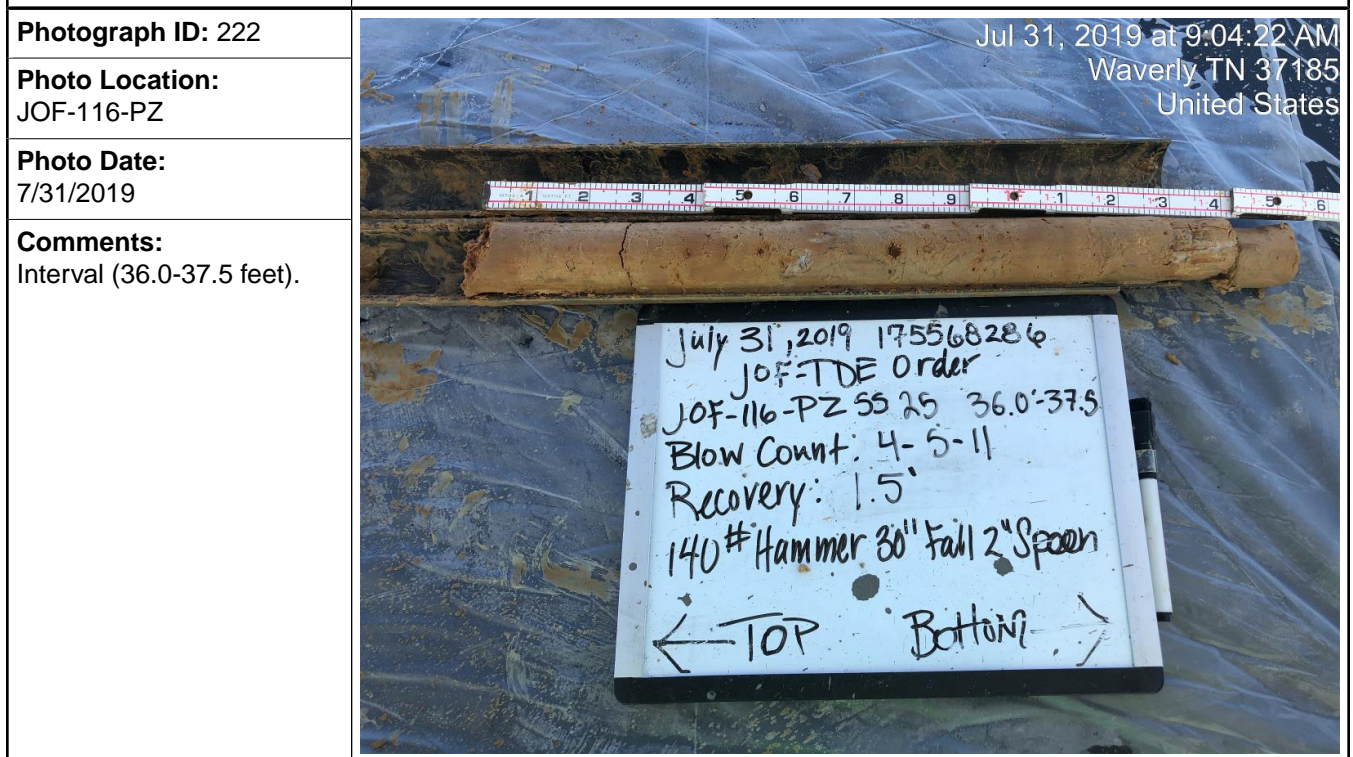 Photograph ID: 222
Photo Location:
JOF-116-PZ
Photo Date:
7/31/2019
Comments:
Interval (36.0-37.5 feet).
Jul 31, 2019 at 9:04:22 AM
Waverly TN 37185
United States
.1 .2 .3 .4 .5 .6 .7 .8 .9 1 1.1 1.2 1.3 1.4 1.5 1.6
July 31, 2019 175568286
JOF-TDE Order
JOF-116-PZ SS 25 36.0'-37.5
Blow Count: 4-5-11
Recovery: 1.5'
140# Hammer 30" Fall 2" Spoon
← TOP Bottom →